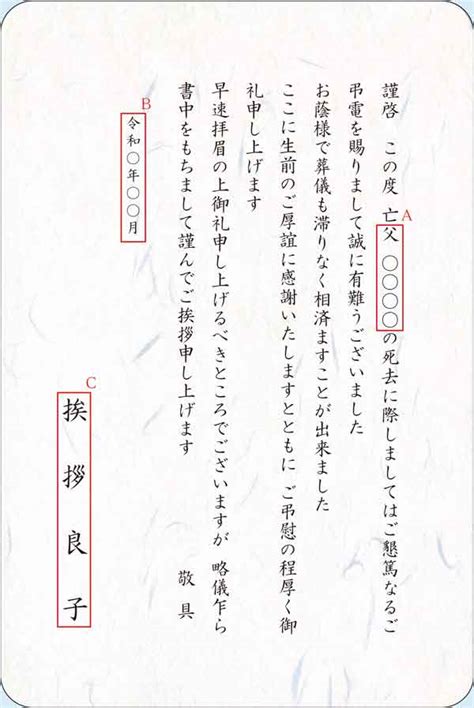 謹啓 この度 亡父 〇〇〇〇の死去に際しましてはご懇篤なるご
弔電を賜りまして誠に有難うございました
お蔭様で葬儀も滞りなく相済ますことが出来ました
ここに生前のご厚誼に感謝いたしますとともに ご弔慰の程厚く御
礼申し上げます
早速拝眉の上御礼申し上げるべきところでございますが 略儀乍ら
書中をもちまして謹んでご挨拶申し上げます 敬具
令和〇年〇〇月
挨拶良子
A
B
C